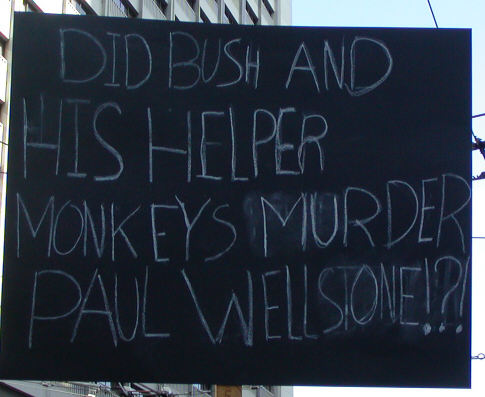 DID BUSH AND
HIS HELPER
MONKEYS MURDER
PAUL WELLSTONE!?!